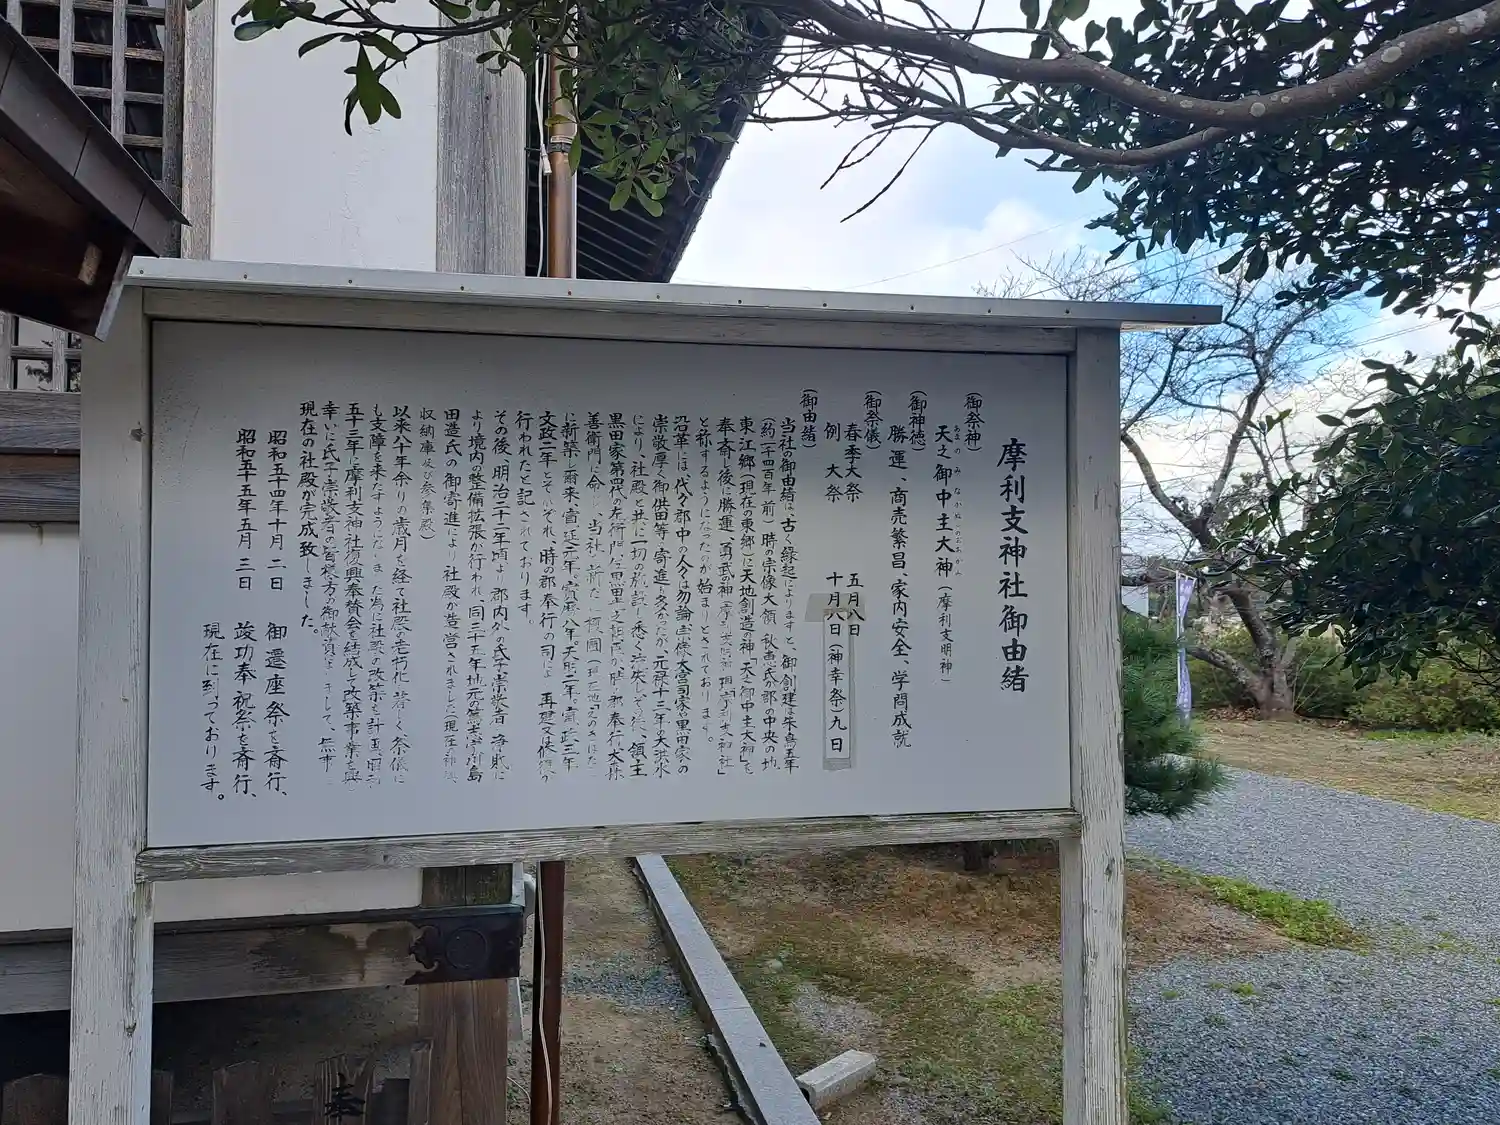 摩利支神社御由緒
(御祭神)
天之御中主大神(摩利支明神)
あまのみなかぬしのおおかみ
(御神徳)
勝運、商売繁昌、家内安全、学問成就
(御祭儀)
春季大祭 五月八日
例大祭 十月八日(神幸祭)九日
(御由緒)
当社の御由緒は、古く縁起によりますと、御創建は朱鳥五年
(約千四百年前)時の宗像大領 秋恵氏郡の中央の地、
東江郷(現在の東郷)に天地創造の神「天之御中主大神」を
奉斎し後に勝運、勇武の神
と称するようになったのが始まりとされております。
沿革には、代々郡中の人々は勿論、宗像大宮司家や黒田家の
崇敬厚く御供田等、寄進も多く 元禄十三年の大洪水
により、社殿と共に一切の旧記も悉く流失して後、領主
黒田家第四代 郡奉行大森
善衛門に命じ、当社
に新築し爾来、寛延二年。宝暦八年 天明二年。寛政三年
文政二年とそれぞれ、時の郡奉行の司により 再建又は修築が
行われたと記されております。
その後、明治二十一年頃より郡内外の氏子、崇敬者、浄財に
より境内の整備拡張が行われ、同三十五年地元の
田造氏の御寄進により、社殿が造営されました(現在神輿
収納庫及び参集殿)
以来八十年余りの歳月を経て社殿の老朽化 著しく祭儀に
も支障を来たすようになり また為に社殿の改築も計画 昭和
五十三年に摩利支神社復興奉賛会を結成して改築事業を興し
幸いに氏子、崇敬者の皆様方の御献資 まして、無事
現在の社殿が完成致しました。
昭和五十四年十月二日 御遷座祭を斎行、
昭和五十五年五月三日 竣功奉祝祭を斎行、
現在に到っております。
奉